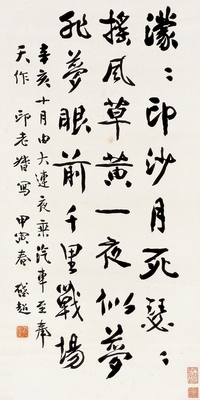 濛〻印沙月死瑟〻
搖風草黃一夜似夢
非夢眼前千里戰場
辛亥十月由大連夜乘汽車至奉
天作 印老督寫 甲寅春 啟超